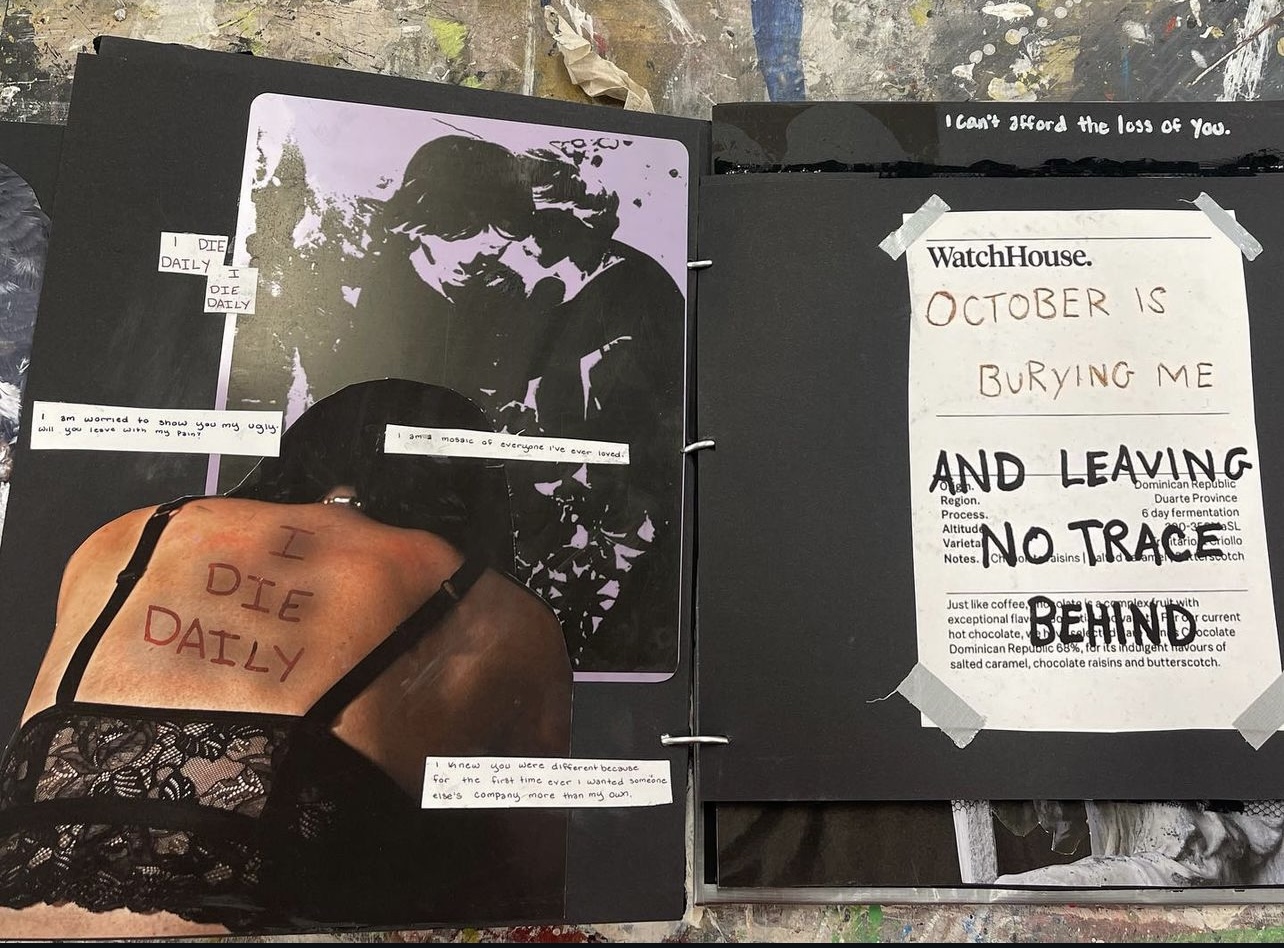 I DIE
DAILY
I
DIE
DAILY
I am worried to show you my ugly.
Will you leave with my pain?
I am a mosaic of everyone I've ever loved.
I
DIE
DAILY
I knew you were different because
for the first time ever I wanted someone
else's company more than my own.
I can't afford the loss of you.
WatchHouse.
OCTOBER IS
BURYING ME
AND LEAVING
Origin. Dominican Republic
Region. Duarte Province
Process. 6 day fermentation
Altitude
NO TRACE
Varietal
Notes. raisins | salted caramel | butterscotch
BEHIND
Just like coffee, chocolate is a complex fruit with
exceptional flavour For our current
hot chocolate, we have selected Chocolate
Dominican Republic 68%, for its indulgent flavours of
salted caramel, chocolate raisins and butterscotch.